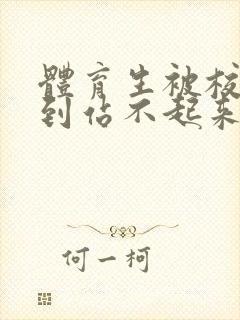 體育生被校
到佔不起來
何一柯